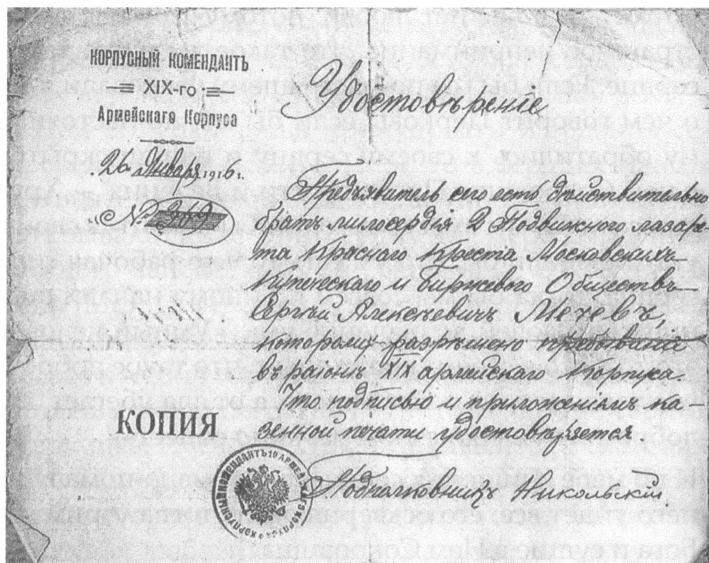 КОРПУСНЫЙ КОМЕНДАНТЪ
XIX-го
Армейскаго Корпуса
26 Января 1916 г.
№
Удостовѣреніе
Предъявитель сего есть дѣйствительно
братъ милосердія 2 Подвижного лазаре-
та Краснаго Креста Московскихъ
Купеческаго и Биржевого Обществъ
Сергѣй Алексѣевичъ Мечёвъ,
которому разрѣшено пребываніе
въ раіонѣ XIX армейскаго Корпуса.
Что подписью и приложеніемъ ка-
зенной печати удостовѣряется.
КОПИЯ
Подполковникъ Никольскій